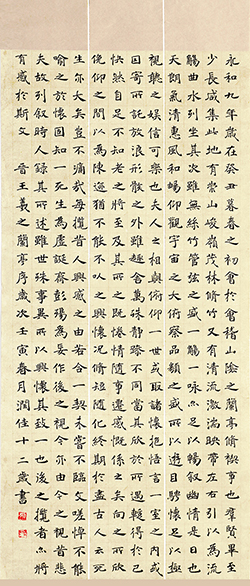 永和九年歲在癸丑暮春之初會於會稽山陰之蘭亭脩禊事也群賢畢至
少長咸集此地有崇山峻嶺茂林脩竹又有清流激湍映帶左右引以為流
觴曲水列坐其次雖無絲竹管弦之盛一觴一詠亦足以暢敘幽情是日也
天朗氣清惠風和暢仰觀宇宙之大俯察品類之盛所以遊目騁懷足以極
視聽之娛信可樂也夫人之相與俯仰一世或取諸懷抱悟言一室之內或
因寄所託放浪形骸之外雖趣舍萬殊靜躁不同當其欣於所遇暫得於己
快然自足不知老之將至及其所之既惓情隨事遷感慨係之矣向之所欣
俛仰之間以為陳迹猶不能不以之興懷況脩短隨化終期於盡古人云死
生亦大矣豈不痛哉每攬昔人興感之由若合一契未嘗不臨文嗟悼不能
喻之於懷固知一死生為虛誕齊彭殤為妄作後之視今亦由今之視昔悲
夫故列敘時人錄其所述雖世殊事異所以興懷其致一也後之攬者亦將
有感於斯文 晉王羲之蘭亭序歲次壬寅春月潤佳十二歲書